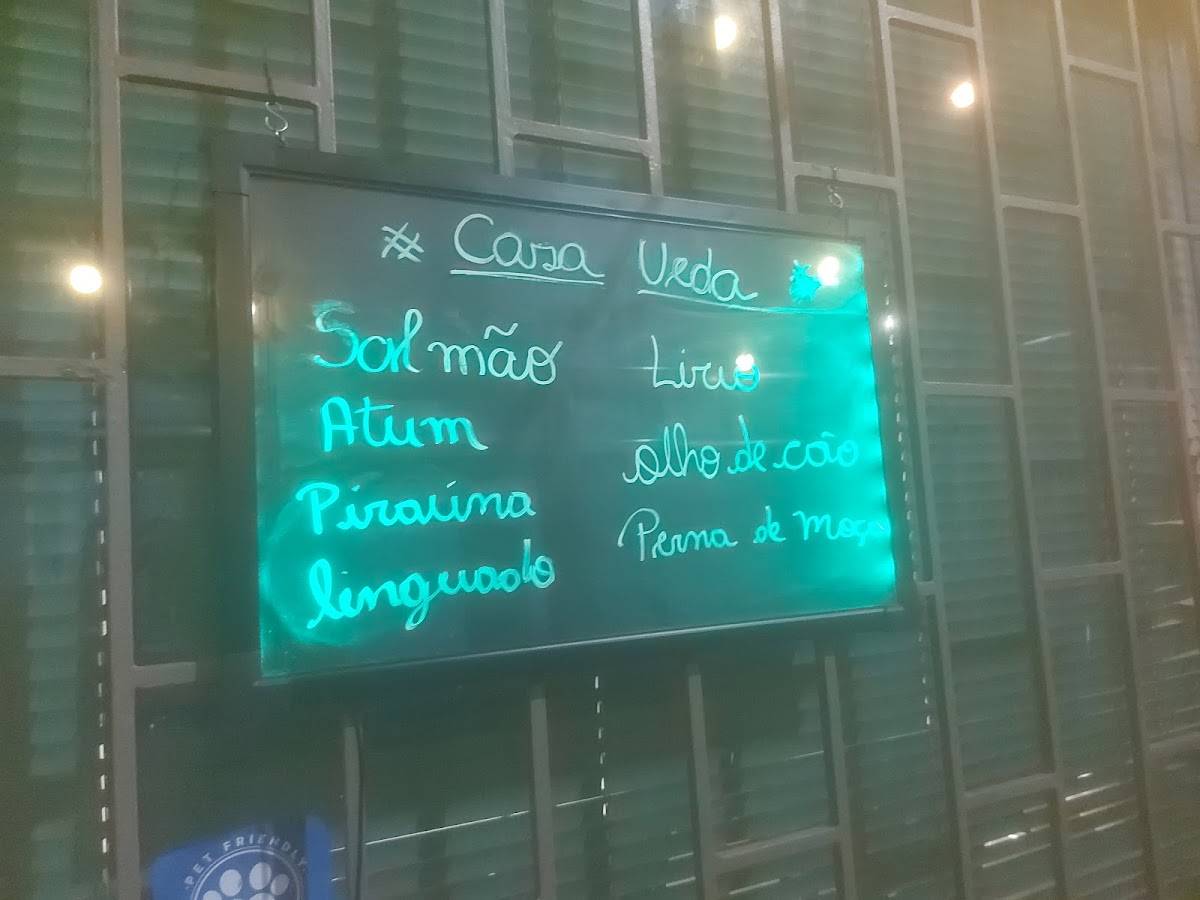 # Casa Ueda
Salmão
Atum
Piraúna
linguado
Lirio
olho de cão
Perna de moça
PET FRIENDLY